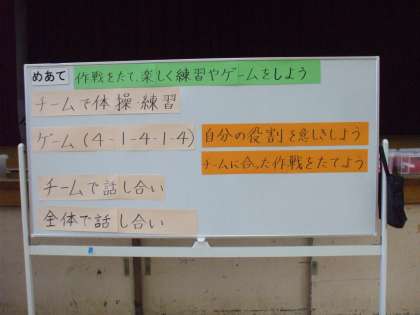 めあて 作戦をたて、楽しく練習やゲームをしよう
チームで体操・練習
ゲーム(4-1-4-1-4) 自分の役割を意しきしよう
チームに合った作戦をたてよう
チームで話し合い
全体で話し合い